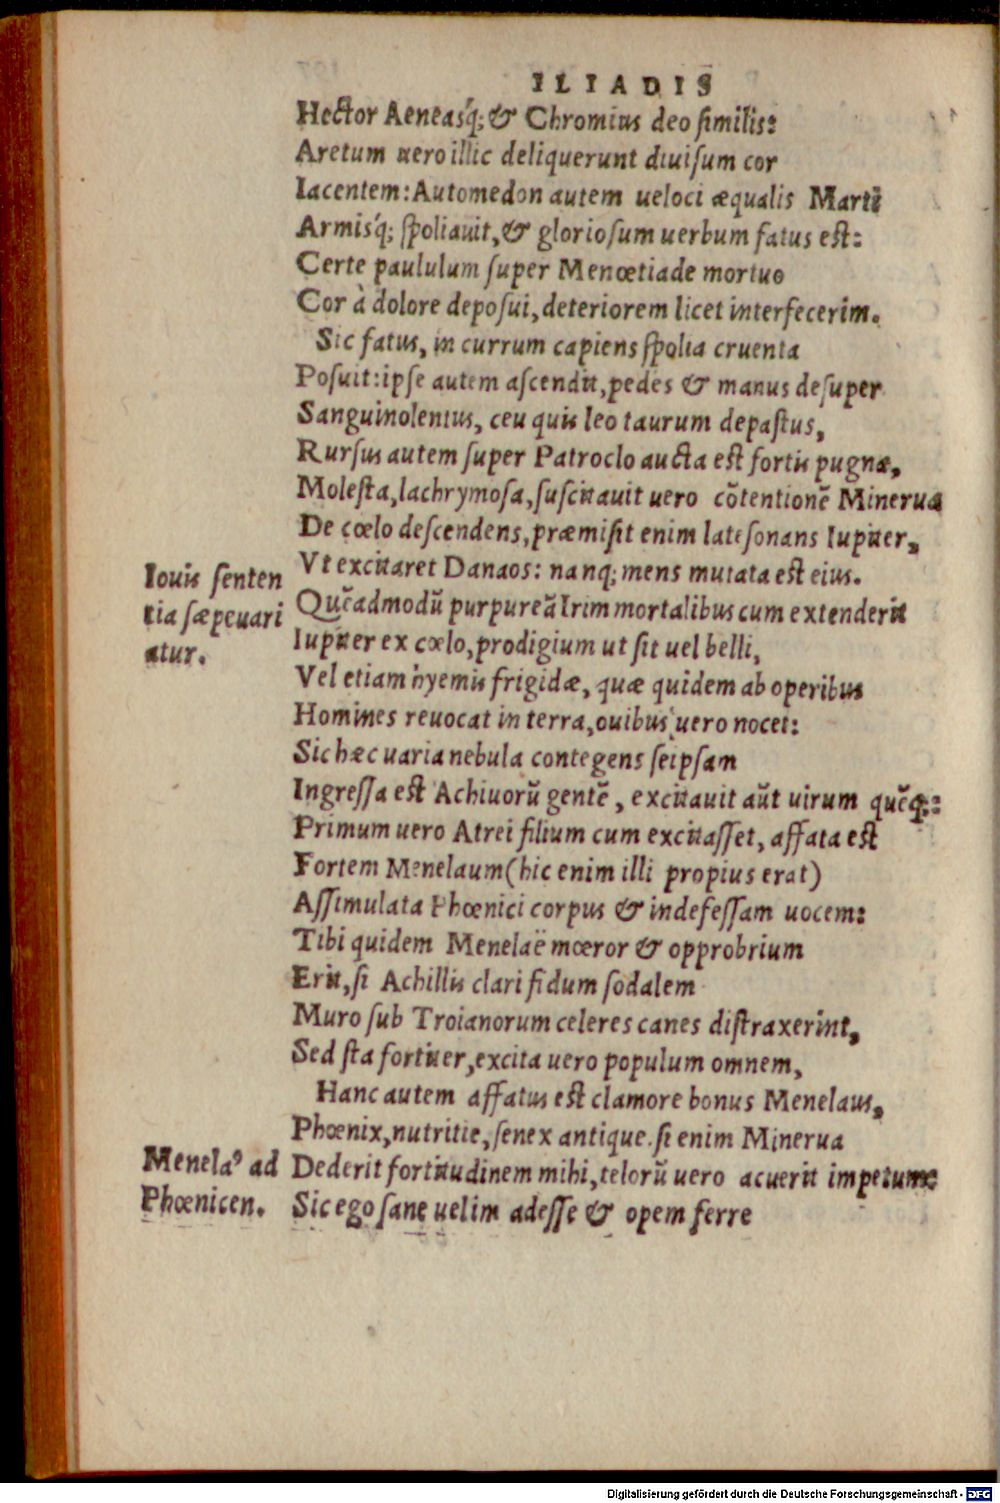 ILIADIS
Hector Aeneasq́; & Chromius deo ſimilis:
Aretum uero illic deliquerunt diuiſum cor
Iacentem: Automedon autem ueloci æqualis Marti
Armisq́; ſpoliauit, & glorioſum uerbum fatus eſt:
Certe paululum ſuper Menœtiade mortuo
Cor à dolore depoſui, deteriorem licet interfecerim.
Sic fatus, in currum capiens ſpolia cruenta
Poſuit: ipſe autem aſcendit, pedes & manus deſuper
Sanguinolentus, ceu quis leo taurum depaſtus,
Rurſus autem ſuper Patroclo aucta eſt fortis pugnæ,
Moleſta, lachrymoſa, ſuſcitauit uero cõtentionẽ Minerua
De cœlo deſcendens, præmiſit enim late ſonans Iupiter,
Vt excitaret Danaos: nanq; mens mutata eſt eius.
Iouis ſenten
tia ſæpe uari
atur.
Quẽadmodũ purpureã Irim mortalibus cum extenderit
Iupiter ex cœlo, prodigium ut ſit uel belli,
Vel etiam hyemis frigidæ, quæ quidem ab operibus
Homines reuocat in terra, ouibus uero nocet:
Sic hæc uaria nebula contegens ſeipſam
Ingreſſa eſt Achiuorũ gentẽ, excitauit aũt uirum quẽq;:
Primum uero Atrei filium cum excitaſſet, affata eſt
Fortem Menelaum (hic enim illi propius erat)
Aſſimulata Phœnici corpus & indefeſſam uocem:
Tibi quidem Menelaë mœror & opprobrium
Erit, ſi Achillis clari fidum ſodalem
Muro ſub Troianorum celeres canes diſtraxerint,
Sed ſta fortiter, excita uero populum omnem,
Hanc autem affatus eſt clamore bonus Menelaus,
Phœnix, nutritie, ſenex antique. ſi enim Minerua
Menelaꝰ ad
Phœnicen.
Dederit fortitudinem mihi, telorũ uero acuerit impetum:
Sic ego ſane uelim adeſſe & opem ferre
Digitalisierung gefördert durch die Deutsche Forschungsgemeinschaft - DFG